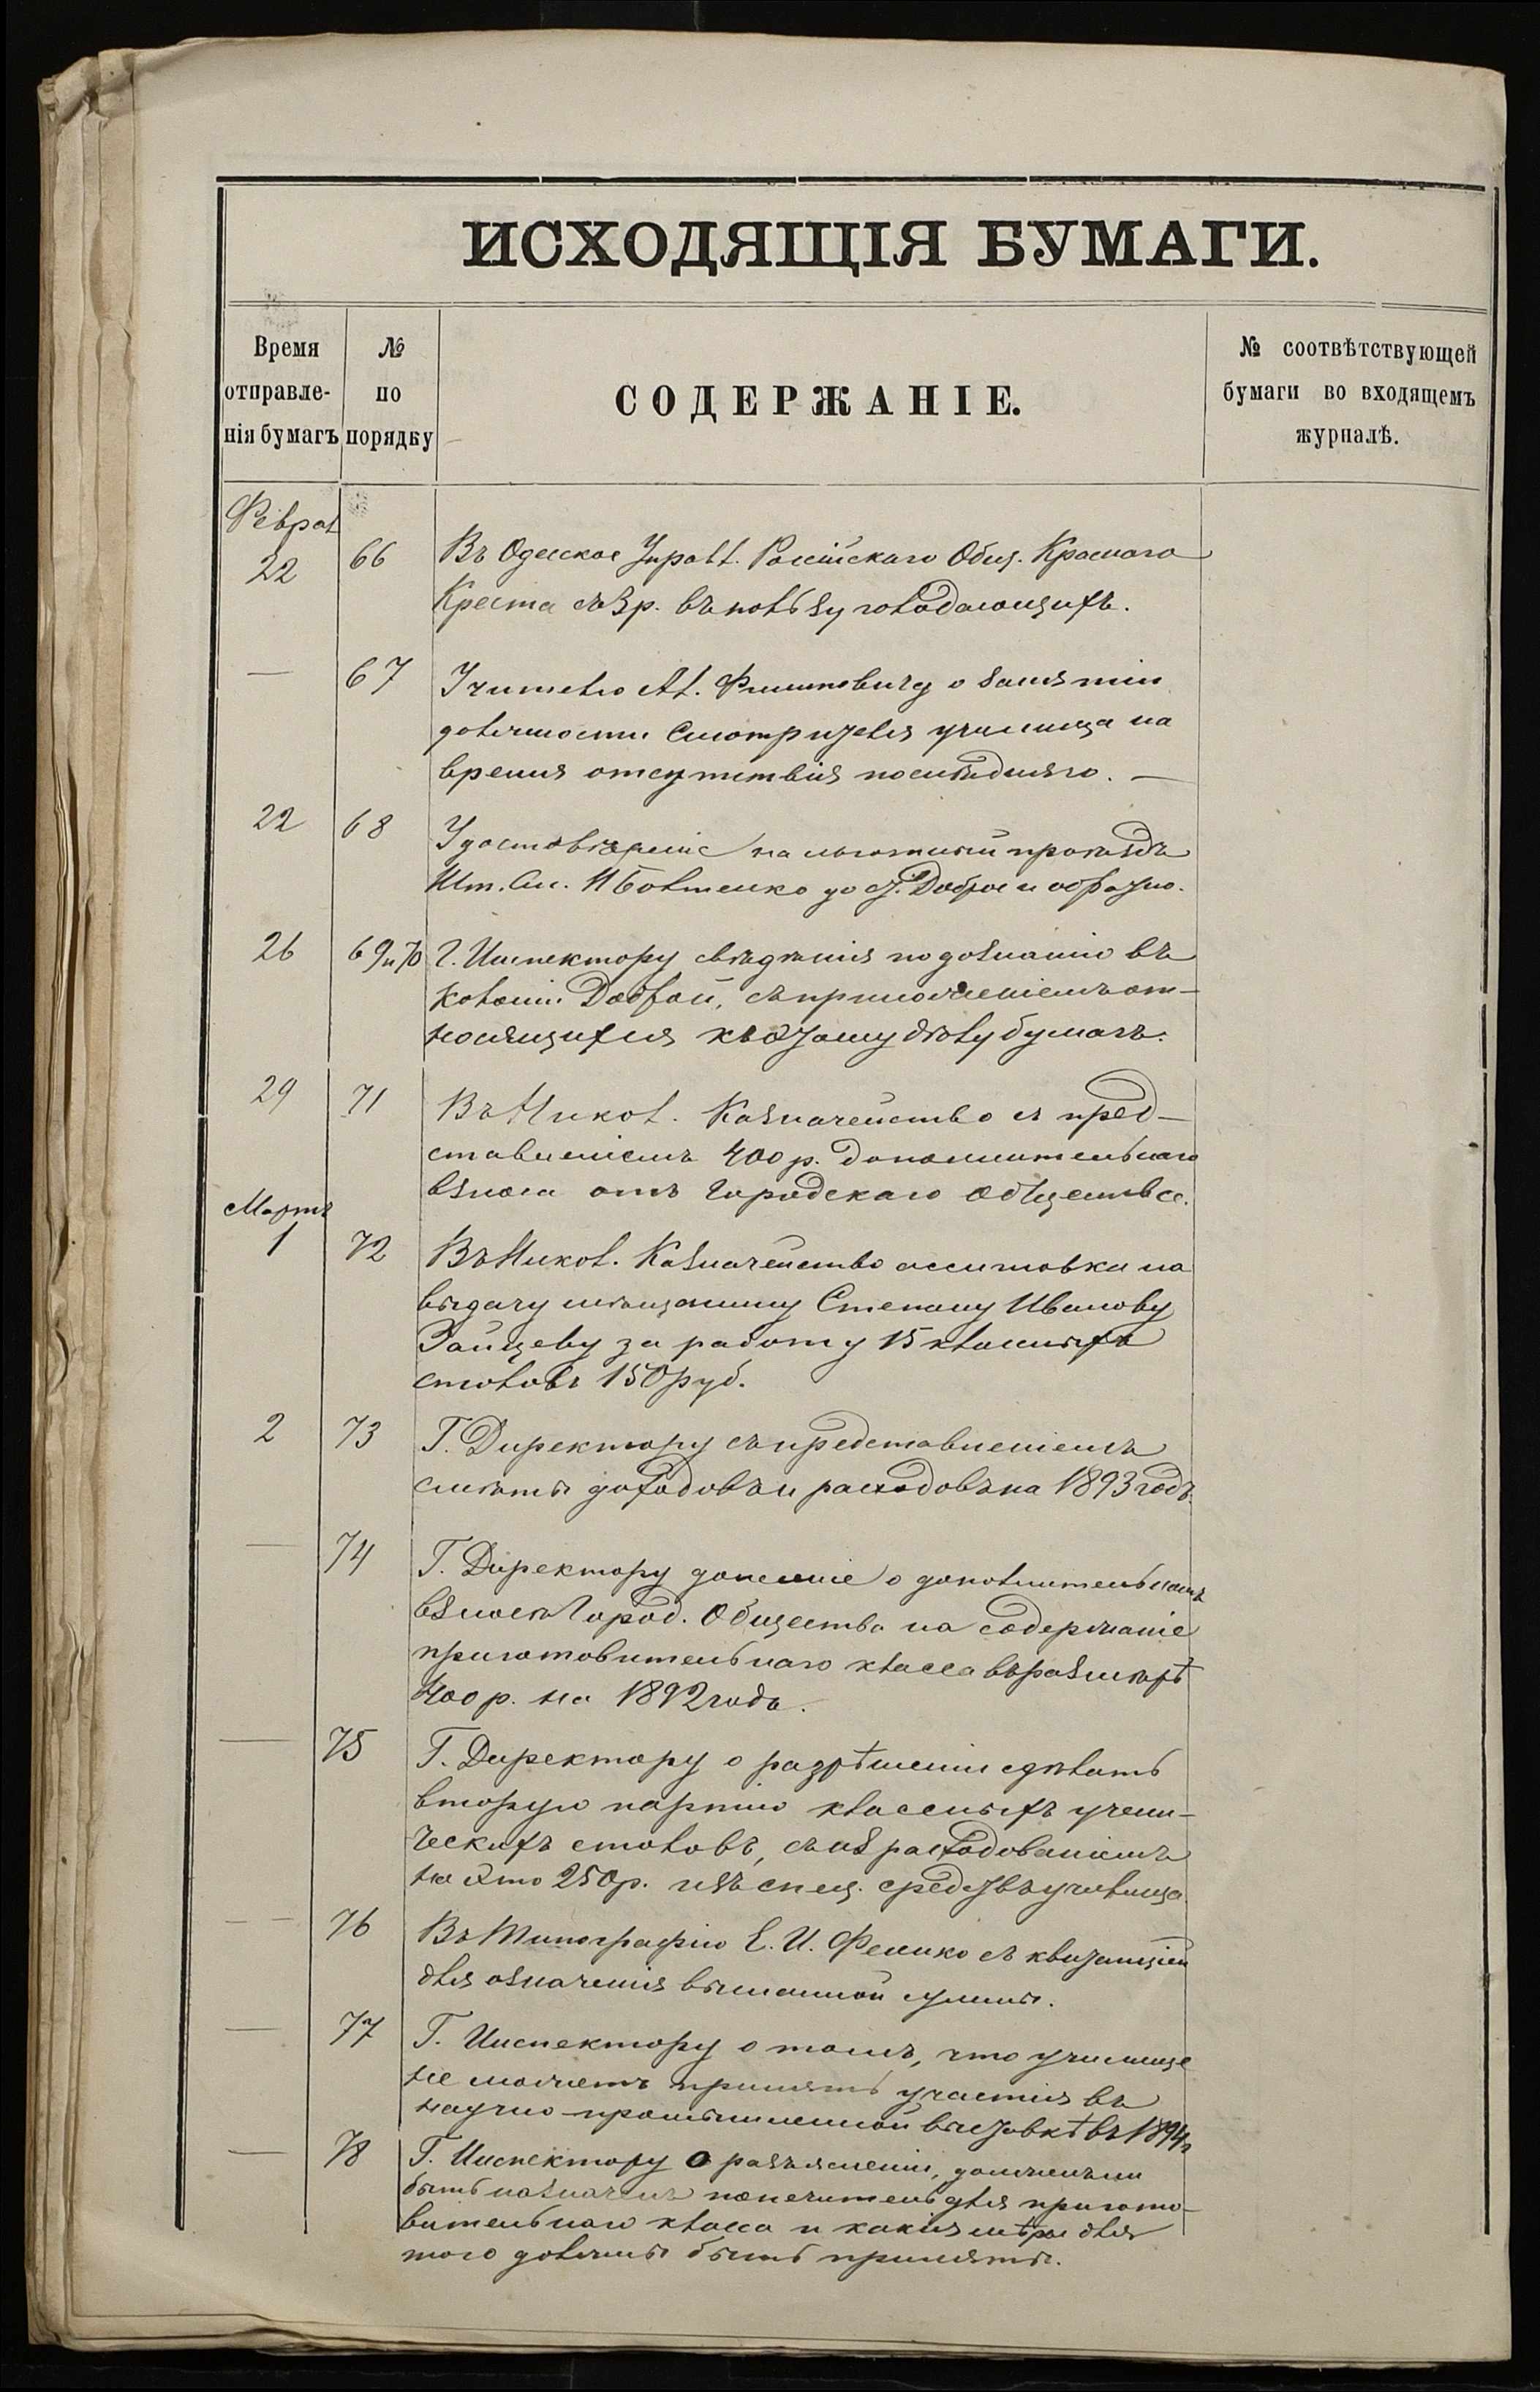 ИСХОДЯЩІЯ БУМАГИ.
Время отправле-нія бумагъ
№ по порядку
СОДЕРЖАНІЕ.
№ соотвѣтствующей бумаги во входящемъ журналѣ.
Феврал
22 66 Въ Одесское Управл. Россійскаго Общ. Краснаго
Креста съ 3 р. въ пользу голодающихъ.
— 67 Учителю Ал. Филиповичу о занятіи
должности Смотрителя училища на
время отсутствія послѣдняго. —
22 68 Удостовѣреніе на льготный проѣздъ
Шт. См. И Болтенко до с. Доброе и обратно.
26 69 и 70 Г. Инспектору свѣдѣнія по дознанію въ
колоніи Доброй, съ приложеніемъ от-
носящихся къ этому дѣлу бумагъ.
29 71 Въ Никол. Казначейство съ пред-
ставленіемъ 400 р. дополнительнаго
взноса отъ Городскаго Общества.
Мартъ
1 72 Въ Никол. Казначейство ассигновка на
выдачу мѣщанину Степану Иванову
Зайцеву за работу 15 классныхъ
столовъ 150 руб.
2 73 Г. Директору съ представленіемъ
смѣты доходовъ и расходовъ на 1893 годъ.
— 74 Г. Директору донесеніе о дополнительномъ
взносѣ Город. Общества на содержаніе
приготовительнаго класса въ размѣрѣ
400 р. на 1892 годъ.
— 75 Г. Директору о разрѣшеніи сдѣлать
вторую партію классныхъ учени-
ческихъ столовъ, съ израсходованіемъ
на это 250 р. изъ спец. средствъ училища
— 76 Въ Типографію Е. И. Фесенко съ квитанціей
для означенія высланной суммы.
— 77 Г. Инспектору о томъ, что училище
не можетъ принять участія въ
научно-промышленной выставкѣ въ 1894 г
— 78 Г. Инспектору о разъясненіи, долженъ ли
быть назначенъ попечитель для пригото-
вительнаго класса и какія мѣры для
того должны быть приняты.